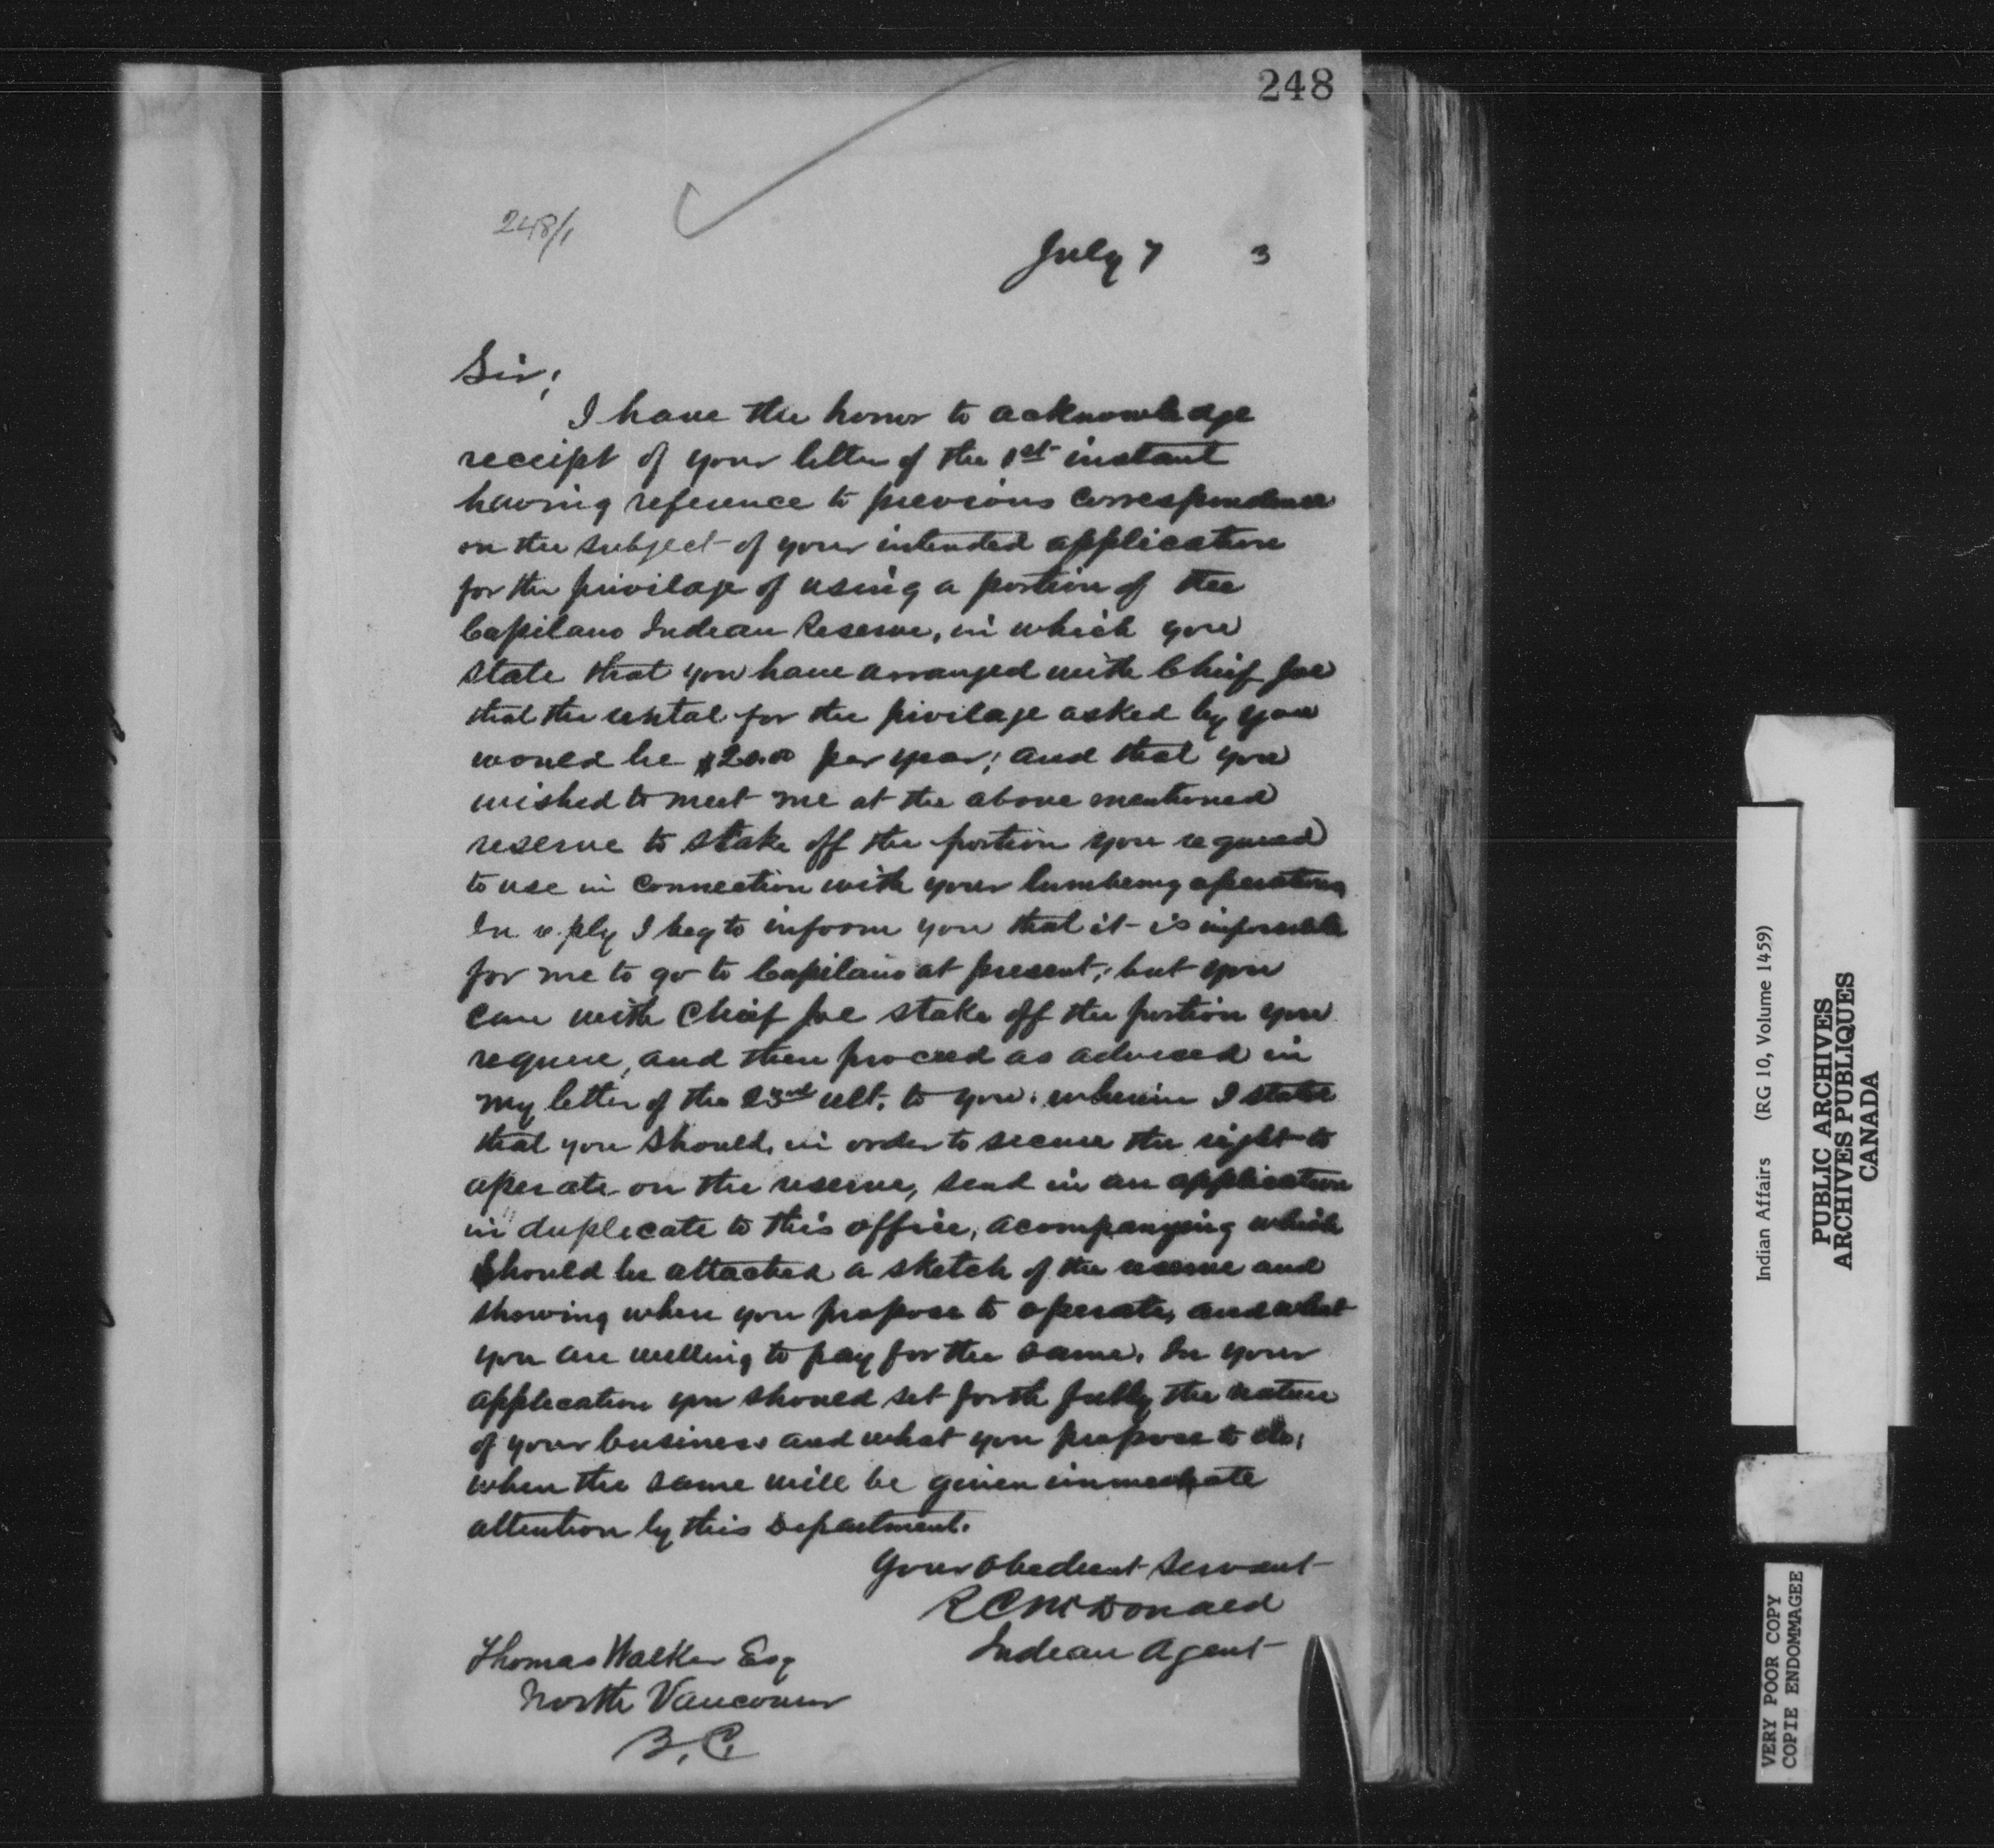 248
248/1
July 7 3
Sir;
I have the honor to acknowledge
receipt of your letter of the 1st instant
having reference to previous correspondence
on the subject of your intended application
for the privilage of using a portion of the
Capilano Indian Reserve, in which you
state that you have arranged with Chief Joe
that the rental for the pivilage asked by you
would be $20.00 per year; and that you
wished to meet me at the above mentioned
reserve to stake off the portion you required
to use in connection with your lumbering operations
In reply I beg to inform you that it is impossible
for me to go to Capilano at present; but you
can with Chief Joe stake off the portion you
require, and then proceed as advised in
my letter of the 23rd ult. to you; wherein I state
that you should, in order to secure the right to
operate on the reserve, send in an application
in duplicate to this office, acompanying which
should be attached a sketch of the reserve and
showing where you propose to operate, and what
you are willing to pay for the same. In your
application you should set forth fully the nature
of your business and what you propose to do,
when the same will be given immediate
attention by this Department.
Your obedient servant
R C McDonald
Indian Agent
Thomas Walker Esq
North Vancouver
B.C.
Indian Affairs (RG 10, Volume 1459)
PUBLIC ARCHIVES
ARCHIVES PUBLIQUES
CANADA
VERY POOR COPY
COPIE ENDOMMAGEE